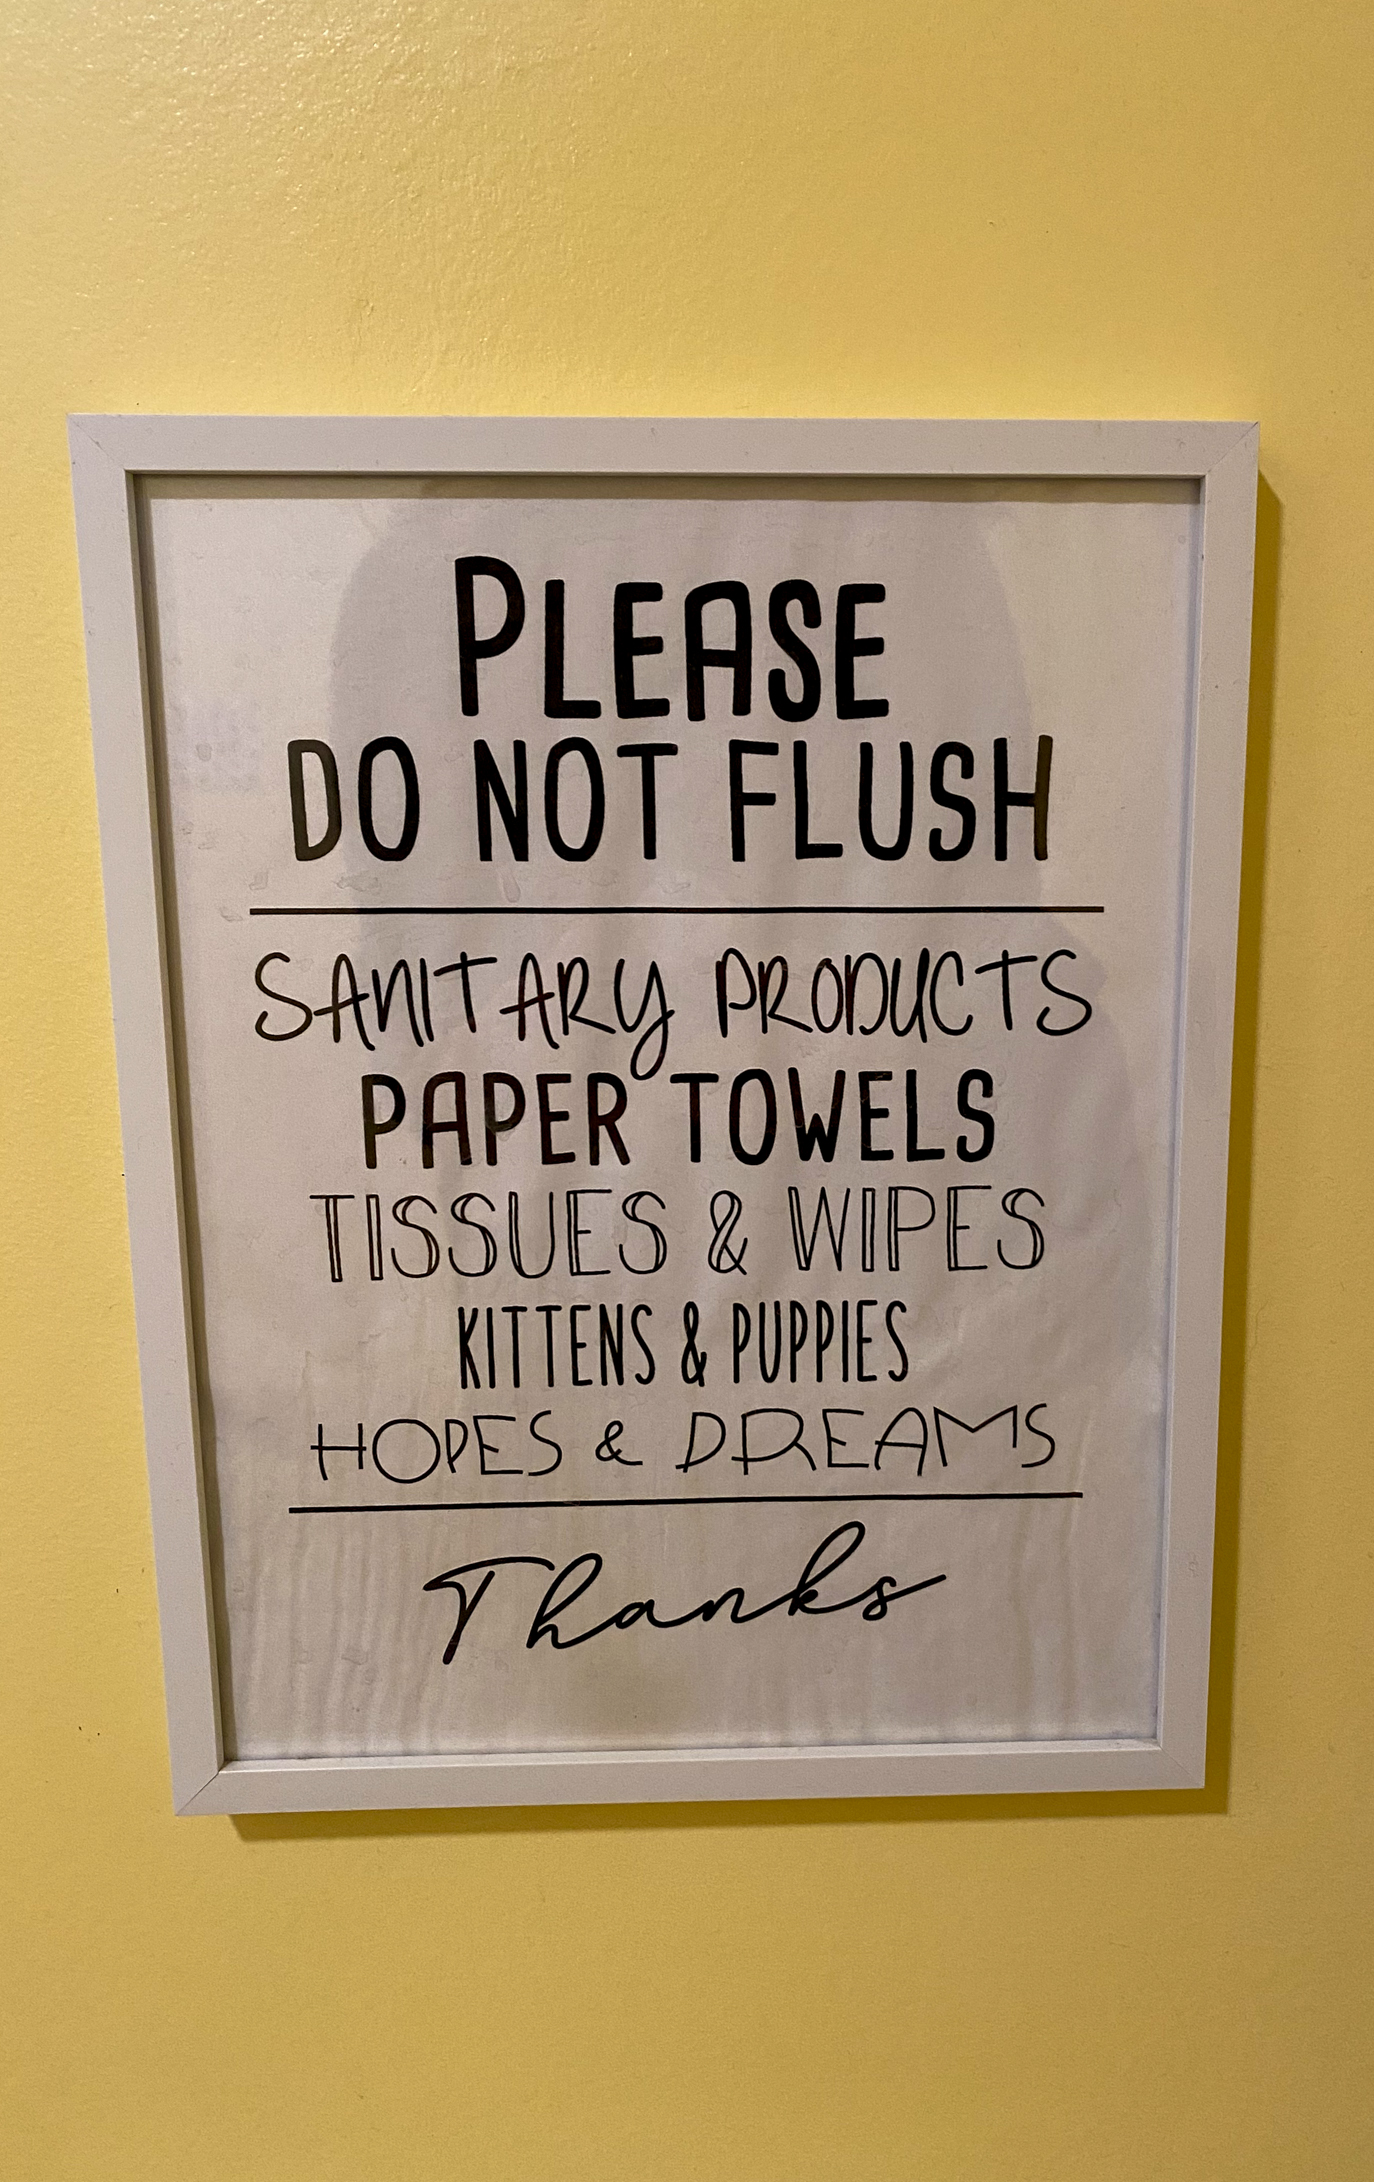 PLEASE
DO NOT FLUSH
SANITARY PRODUCTS
PAPER TOWELS
TISSUES & WIPES
KITTENS & PUPPIES
HOPES & DREAMS
Thanks